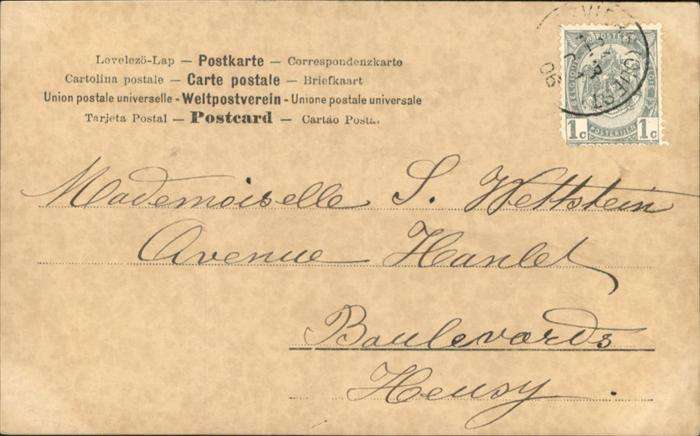 Levelező-Lap — Postkarte — Correspondenzkarte
Cartolina postale — Carte postale — Briefkaart
Union postale universelle - Weltpostverein - Unione postale universale
Tarjeta Postal — Postcard — Cartão Postal.
1c 1c
OUEST
06
Mademoiselle S. Wettstein
Avenue Hanlet
Boulevards
Heusy.